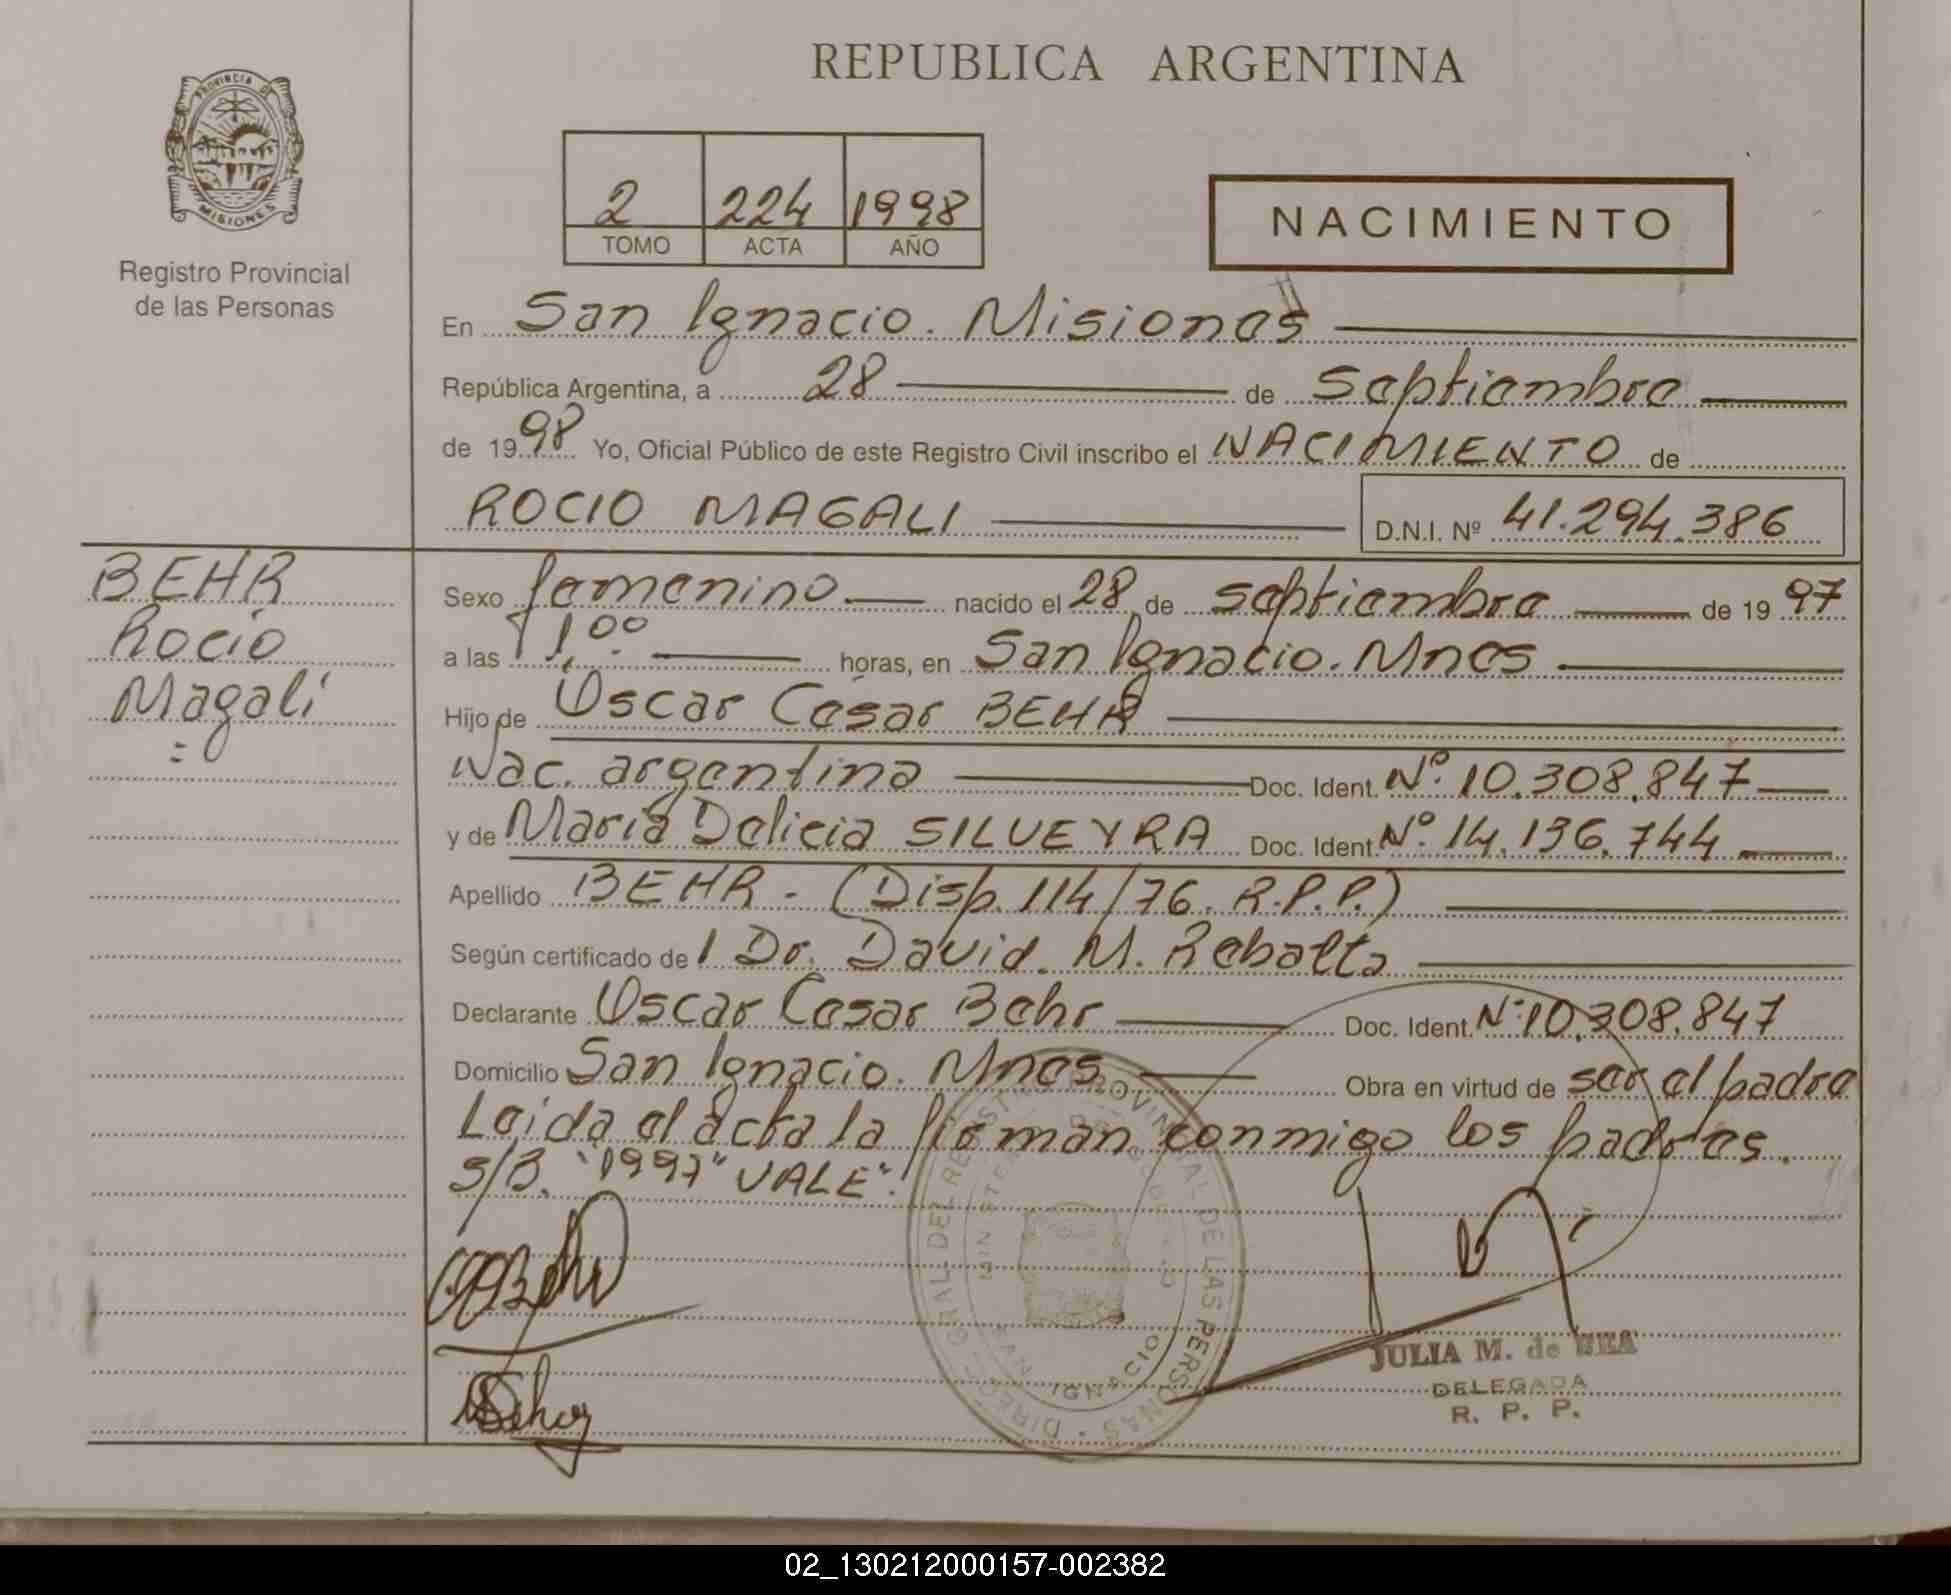 REPUBLICA ARGENTINA
PROVINCIA DE
MISIONES
Registro Provincial
de las Personas
2 224 1998
TOMO ACTA AÑO
NACIMIENTO
En San Ignacio. Misiones
República Argentina, a 28 de Septiembre
de 1998 Yo, Oficial Público de este Registro Civil inscribo el NACIMIENTO de
ROCIO MAGALI D.N.I. Nº 41.294.386
BEHR
Rocio
Magali
Sexo femenino nacido el 28 de septiembre de 1997
a las horas, en San Ignacio. Mnes
Hijo de Oscar Cesar BEHR
Nac. argentina Doc. Ident. Nº 10.308.847
y de Maria Delicia SILVEYRA Doc. Ident. Nº 14.136.744
Apellido BEHR - (Disp. 114/76. R.P.P.)
Según certificado de 1 Dr. David. M. Rebalta
Declarante Oscar Cesar Behr Doc. Ident. Nº 10.308.847
Domicilio San Ignacio. Mnes Obra en virtud de ser el padre
Leida el acta la firman conmigo los padres.
S/B. "1997" VALE".
DIREC. GRAL DEL REGISTRO PROVINCIAL DE LAS PERSONAS
SAN IGNACIO
JULIA M. de
DELEGADA
R. P. P.
02_130212000157-002382